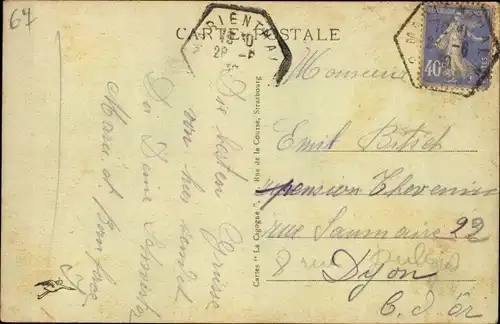 67
CARTE POSTALE
40
Die besten Grüsse
von hier sendet
Dir Deine Schwester
Maria et Boniface
Cartes "La Cigogne", Rue de la Course, Strasbourg
Monsieur
Emil Bitsch
pension Thevenin
rue Saumaire 22
8 rue
Dijon
C. d'Or